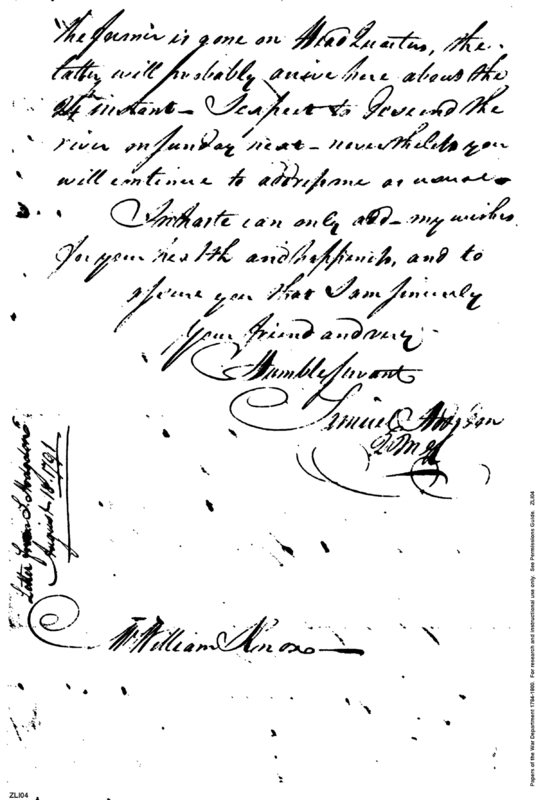 The former is gone on Head Quarters, the
latter will probably arive here about the
24th instant – I expect to Descend the
river on sunday next – nevertheless you
will continue to address me as usual –
In haste can only add – my wishes
for your health and happiness, and to
assure you that I am sincerely
your friend and very
Humble servant
Samuel Hodgdon
QMG
Letter from S. Hodgdon
August 18 1791
Mr William Knox
Papers of the War Department 1784-1800. For research and instructional use only. See Permissions Guide. ZLI04
ZLI04